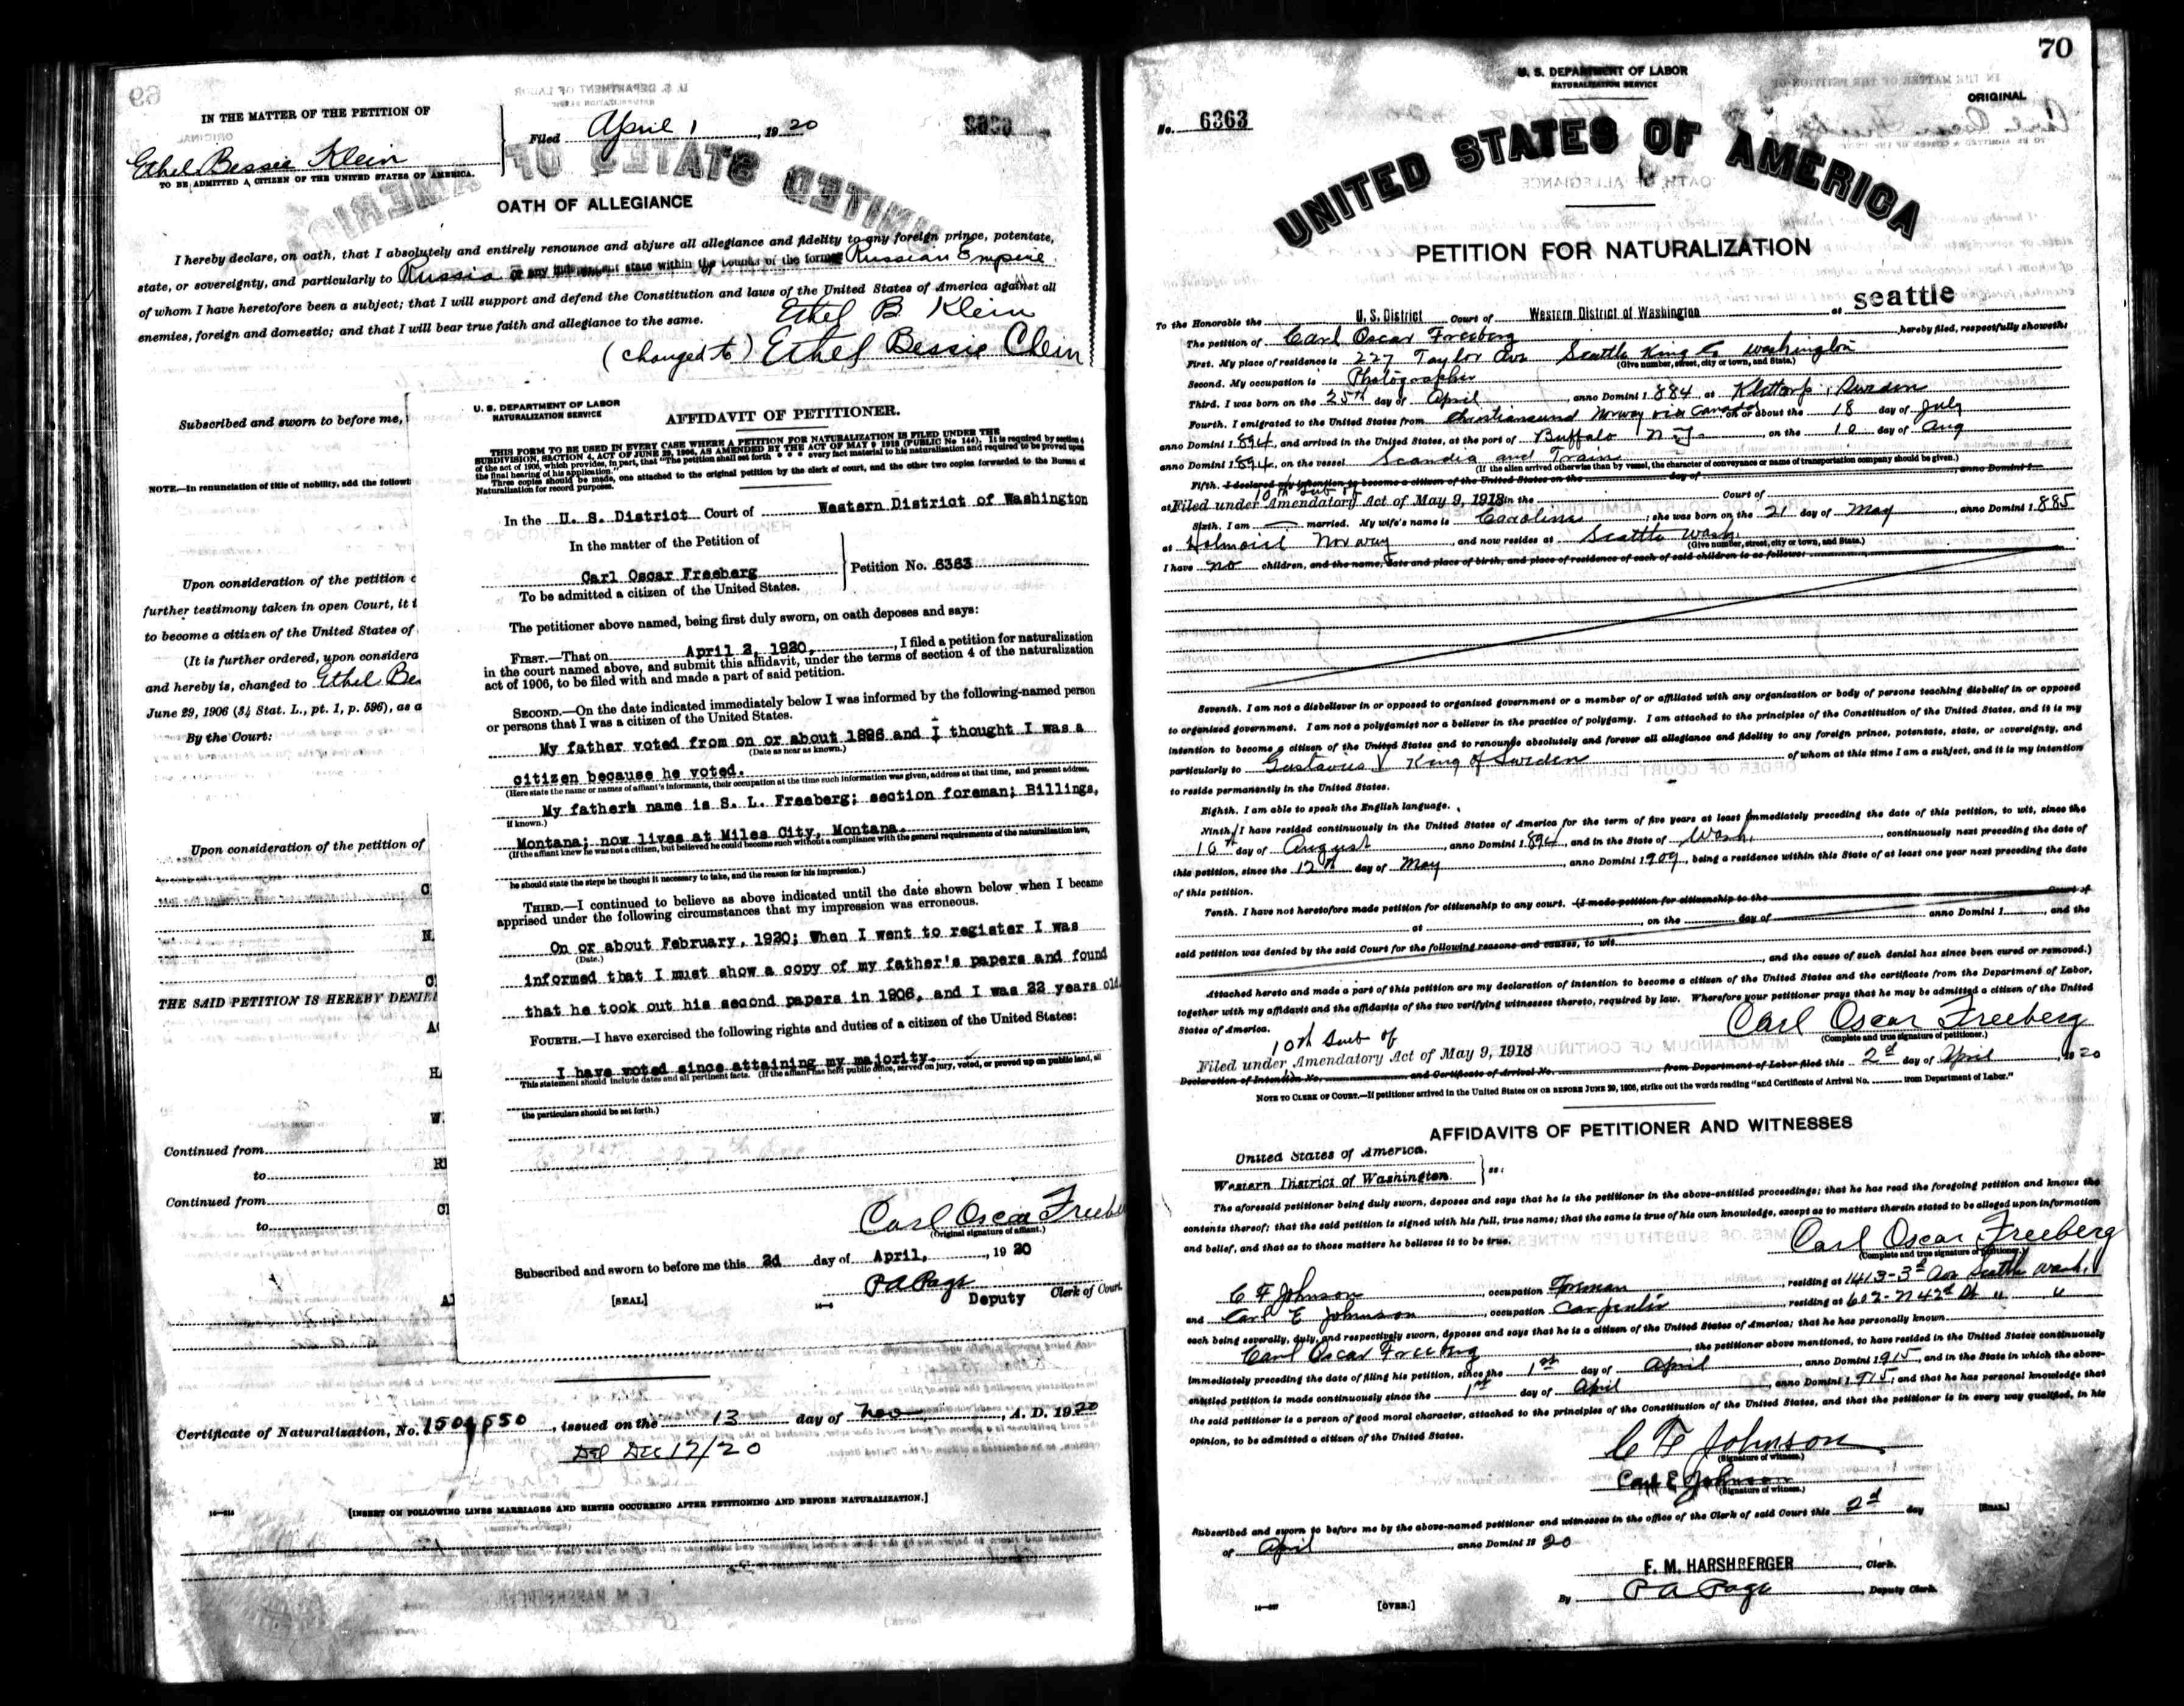 69
IN THE MATTER OF THE PETITION OF
Ethel Bessie Klein
TO BE ADMITTED A CITIZEN OF THE UNITED STATES OF AMERICA.
Filed April 1, 1920
OATH OF ALLEGIANCE
I hereby declare, on oath, that I absolutely and entirely renounce and abjure all allegiance and fidelity to any foreign prince, potentate,
state, or sovereignty, and particularly to Russia or any independent state within the bounds of the former Russian Empire
of whom I have heretofore been a subject; that I will support and defend the Constitution and laws of the United States of America against all
enemies, foreign and domestic; and that I will bear true faith and allegiance to the same.
Ethel B Klein
(changed to) Ethel Bessie Clein
Subscribed and sworn to before me,
NOTE.—In renunciation of title of nobility, add the followi
Upon consideration of the petition o
further testimony taken in open Court, it i
to become a citizen of the United States of
(It is further ordered, upon considera
and hereby is, changed to Ethel Be
June 29, 1906 (34 Stat. L., pt. 1, p. 596), as a
By the Court:
Upon consideration of the petition of
THE SAID PETITION IS HEREBY DENIE
Continued from
to
Continued from
to
U. S. DEPARTMENT OF LABOR
NATURALIZATION SERVICE
AFFIDAVIT OF PETITIONER.
THIS FORM TO BE USED IN EVERY CASE WHERE A PETITION FOR NATURALIZATION IS FILED UNDER THE
SUBDIVISION, SECTION 4, ACT OF JUNE 29, 1906, AS AMENDED BY THE ACT OF MAY 9 1918 (PUBLIC No 144). It is required by section 4
of the act of 1906, which provides, in part, that "The petition shall set forth * * * every fact material to his naturalization and required to be proved upon
the final hearing of his application."
Three copies should be made, one attached to the original petition by the clerk of court, and the other two copies forwarded to the Bureau of
Naturalization for record purposes.
In the U. S. District Court of Western District of Washington
In the matter of the Petition of
Carl Oscar Freeberg
To be admitted a citizen of the United States.
Petition No. 6363
The petitioner above named, being first duly sworn, on oath deposes and says:
FIRST.—That on April 2, 1920, I filed a petition for naturalization
in the court named above, and submit this affidavit, under the terms of section 4 of the naturalization
act of 1906, to be filed with and made a part of said petition.
SECOND.—On the date indicated immediately below I was informed by the following-named person
or persons that I was a citizen of the United States.
My father voted from on or about 1896 and I thought I was a
(Date as near as known.)
citizen because he voted.
(Here state the name or names of affiant's informants, their occupation at the time such information was given, address at that time, and present address,
My fathers name is S. L. Freeberg; section foreman; Billings,
if known.)
Montana; now lives at Miles City, Montana.
(If the affiant knew he was not a citizen, but believed he could become such without a compliance with the general requirements of the naturalization laws,
he should state the steps he thought it necessary to take, and the reason for his impression.)
THIRD.—I continued to believe as above indicated until the date shown below when I became
apprised under the following circumstances that my impression was erroneous.
On or about February, 1920; When I went to register I was
(Date.)
informed that I must show a copy of my father's papers and found
that he took out his second papers in 1906, and I was 22 years old.
FOURTH.—I have exercised the following rights and duties of a citizen of the United States:
I have voted since attaining my majority.
This statement should include dates and all pertinent facts. (If the affiant has held public office, served on jury, voted, or proved up on public land, all
the particulars should be set forth.)
Carl Oscar Freebe
(Original signature of affiant.)
Subscribed and sworn to before me this 2d day of April, 1920
P A Page
[SEAL]
Deputy Clerk of Court.
Certificate of Naturalization, No. 1504550, issued on the 13 day of Nov, A. D. 1920
Del Dec 17/20
[INSERT ON FOLLOWING LINES MARRIAGES AND BIRTHS OCCURRING AFTER PETITIONING AND BEFORE NATURALIZATION.]
70
U. S. DEPARTMENT OF LABOR
NATURALIZATION SERVICE
ORIGINAL
No. 6363
UNITED STATES OF AMERICA
PETITION FOR NATURALIZATION
To the Honorable the U. S. District Court of Western District of Washington at seattle
The petition of Carl Oscar Freeberg, hereby filed, respectfully showeth:
First. My place of residence is 227 Taylor Ave Seattle King Co Washington
(Give number, street, city or town, and State.)
Second. My occupation is Photographer
Third. I was born on the 25th day of April, anno Domini 1884, at Klettorp, Sweden
Fourth. I emigrated to the United States from Christiansund Norway via Canada on or about the 18 day of July
anno Domini 1894, and arrived in the United States, at the port of Buffalo N.Y., on the 10 day of Aug
anno Domini 1894, on the vessel Scandia and Train
(If the alien arrived otherwise than by vessel, the character of conveyance or name of transportation company should be given.)
Fifth. I declared my intention to become a citizen of the United States on the day of, anno Domini 1
10th Sub of
at Filed under Amendatory Act of May 9, 1918 in the Court of
Sixth. I am married. My wife's name is Carolina; she was born on the 21 day of May, anno Domini 1885
at Holmoist Norway, and now resides at Seattle Wash.
(Give number, street, city or town, and State.)
I have no children, and the name, date and place of birth, and place of residence of each of said children is as follows:
Seventh. I am not a disbeliever in or opposed to organized government or a member of or affiliated with any organization or body of persons teaching disbelief in or opposed
to organized government. I am not a polygamist nor a believer in the practice of polygamy. I am attached to the principles of the Constitution of the United States, and it is my
intention to become a citizen of the United States and to renounce absolutely and forever all allegiance and fidelity to any foreign prince, potentate, state, or sovereignty, and
particularly to Gustavus V King of Sweden of whom at this time I am a subject, and it is my intention
to reside permanently in the United States.
Eighth. I am able to speak the English language.
Ninth. I have resided continuously in the United States of America for the term of five years at least immediately preceding the date of this petition, to wit, since the
10th day of August, anno Domini 1894, and in the State of Wash, continuously next preceding the date of
this petition, since the 12th day of May, anno Domini 1909, being a residence within this State of at least one year next preceding the date
of this petition.
Tenth. I have not heretofore made petition for citizenship to any court. (I made petition for citizenship to the Court of
at, on the day of anno Domini 1, and the
said petition was denied by the said Court for the following reasons and causes, to wit
, and the cause of such denial has since been cured or removed.)
Attached hereto and made a part of this petition are my declaration of intention to become a citizen of the United States and the certificate from the Department of Labor,
together with my affidavit and the affidavits of the two verifying witnesses thereto, required by law. Wherefore your petitioner prays that he may be admitted a citizen of the United
States of America.
Carl Oscar Freeberg
(Complete and true signature of petitioner.)
10th Sub of
Filed under Amendatory Act of May 9, 1918
Declaration of Intention No. and Certificate of Arrival No. from Department of Labor filed this 2d day of April, 1920
NOTE TO CLERK OF COURT.—If petitioner arrived in the United States ON OR BEFORE JUNE 29, 1906, strike out the words reading "and Certificate of Arrival No. from Department of Labor."
AFFIDAVITS OF PETITIONER AND WITNESSES
United States of America.
Western District of Washington. ss:
The aforesaid petitioner being duly sworn, deposes and says that he is the petitioner in the above-entitled proceedings; that he has read the foregoing petition and knows the
contents thereof; that the said petition is signed with his full, true name; that the same is true of his own knowledge, except as to matters therein stated to be alleged upon information
and belief, and that as to those matters he believes it to be true.
Carl Oscar Freeberg
(Complete and true signature of petitioner.)
C F Johnson, occupation Foreman, residing at 1413-3d Ave Seattle Wash.
and Carl E Johnson, occupation Carpenter, residing at 602-N 42d St " "
each being severally, duly, and respectively sworn, deposes and says that he is a citizen of the United States of America; that he has personally known
Carl Oscar Freeberg, the petitioner above mentioned, to have resided in the United States continuously
immediately preceding the date of filing his petition, since the 1st day of April, anno Domini 1915, and in the State in which the above-
entitled petition is made continuously since the 1st day of April, anno Domini 1915; and that he has personal knowledge that
the said petitioner is a person of good moral character, attached to the principles of the Constitution of the United States, and that the petitioner is in every way qualified, in his
opinion, to be admitted a citizen of the United States.
C F Johnson
(Signature of witness.)
Carl E Johnson
(Signature of witness.)
Subscribed and sworn to before me by the above-named petitioner and witnesses in the office of the Clerk of said Court this 2d day
[SEAL.]
of April, anno Domini 1920
F. M. HARSHBERGER, Clerk.
By P A Page, Deputy Clerk.
[OVER.]